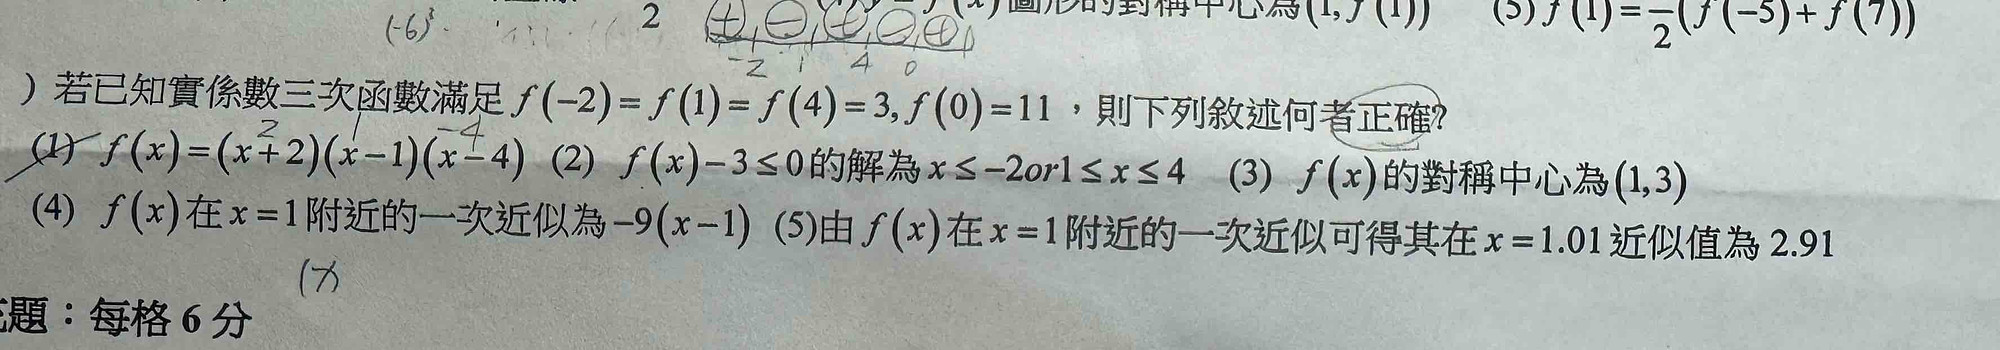 圖形的對稱中心為(1, f(1)) (5) f(1) = 1/2(f(−5) + f(7))
(-6)³ 2 + − + − +
-2 1 4 0
) 若已知實係數三次函數滿足 f(−2) = f(1) = f(4) = 3, f(0) = 11，則下列敘述何者正確?
2 1 -4
(1) f(x) = (x+2)(x−1)(x−4) (2) f(x)−3 ≤ 0的解為 x ≤ −2or1 ≤ x ≤ 4 (3) f(x)的對稱中心為(1,3)
(4) f(x)在x = 1附近的一次近似為−9(x−1) (5)由 f(x)在x = 1附近的一次近似可得其在x = 1.01近似值為 2.91
題：每格 6 分